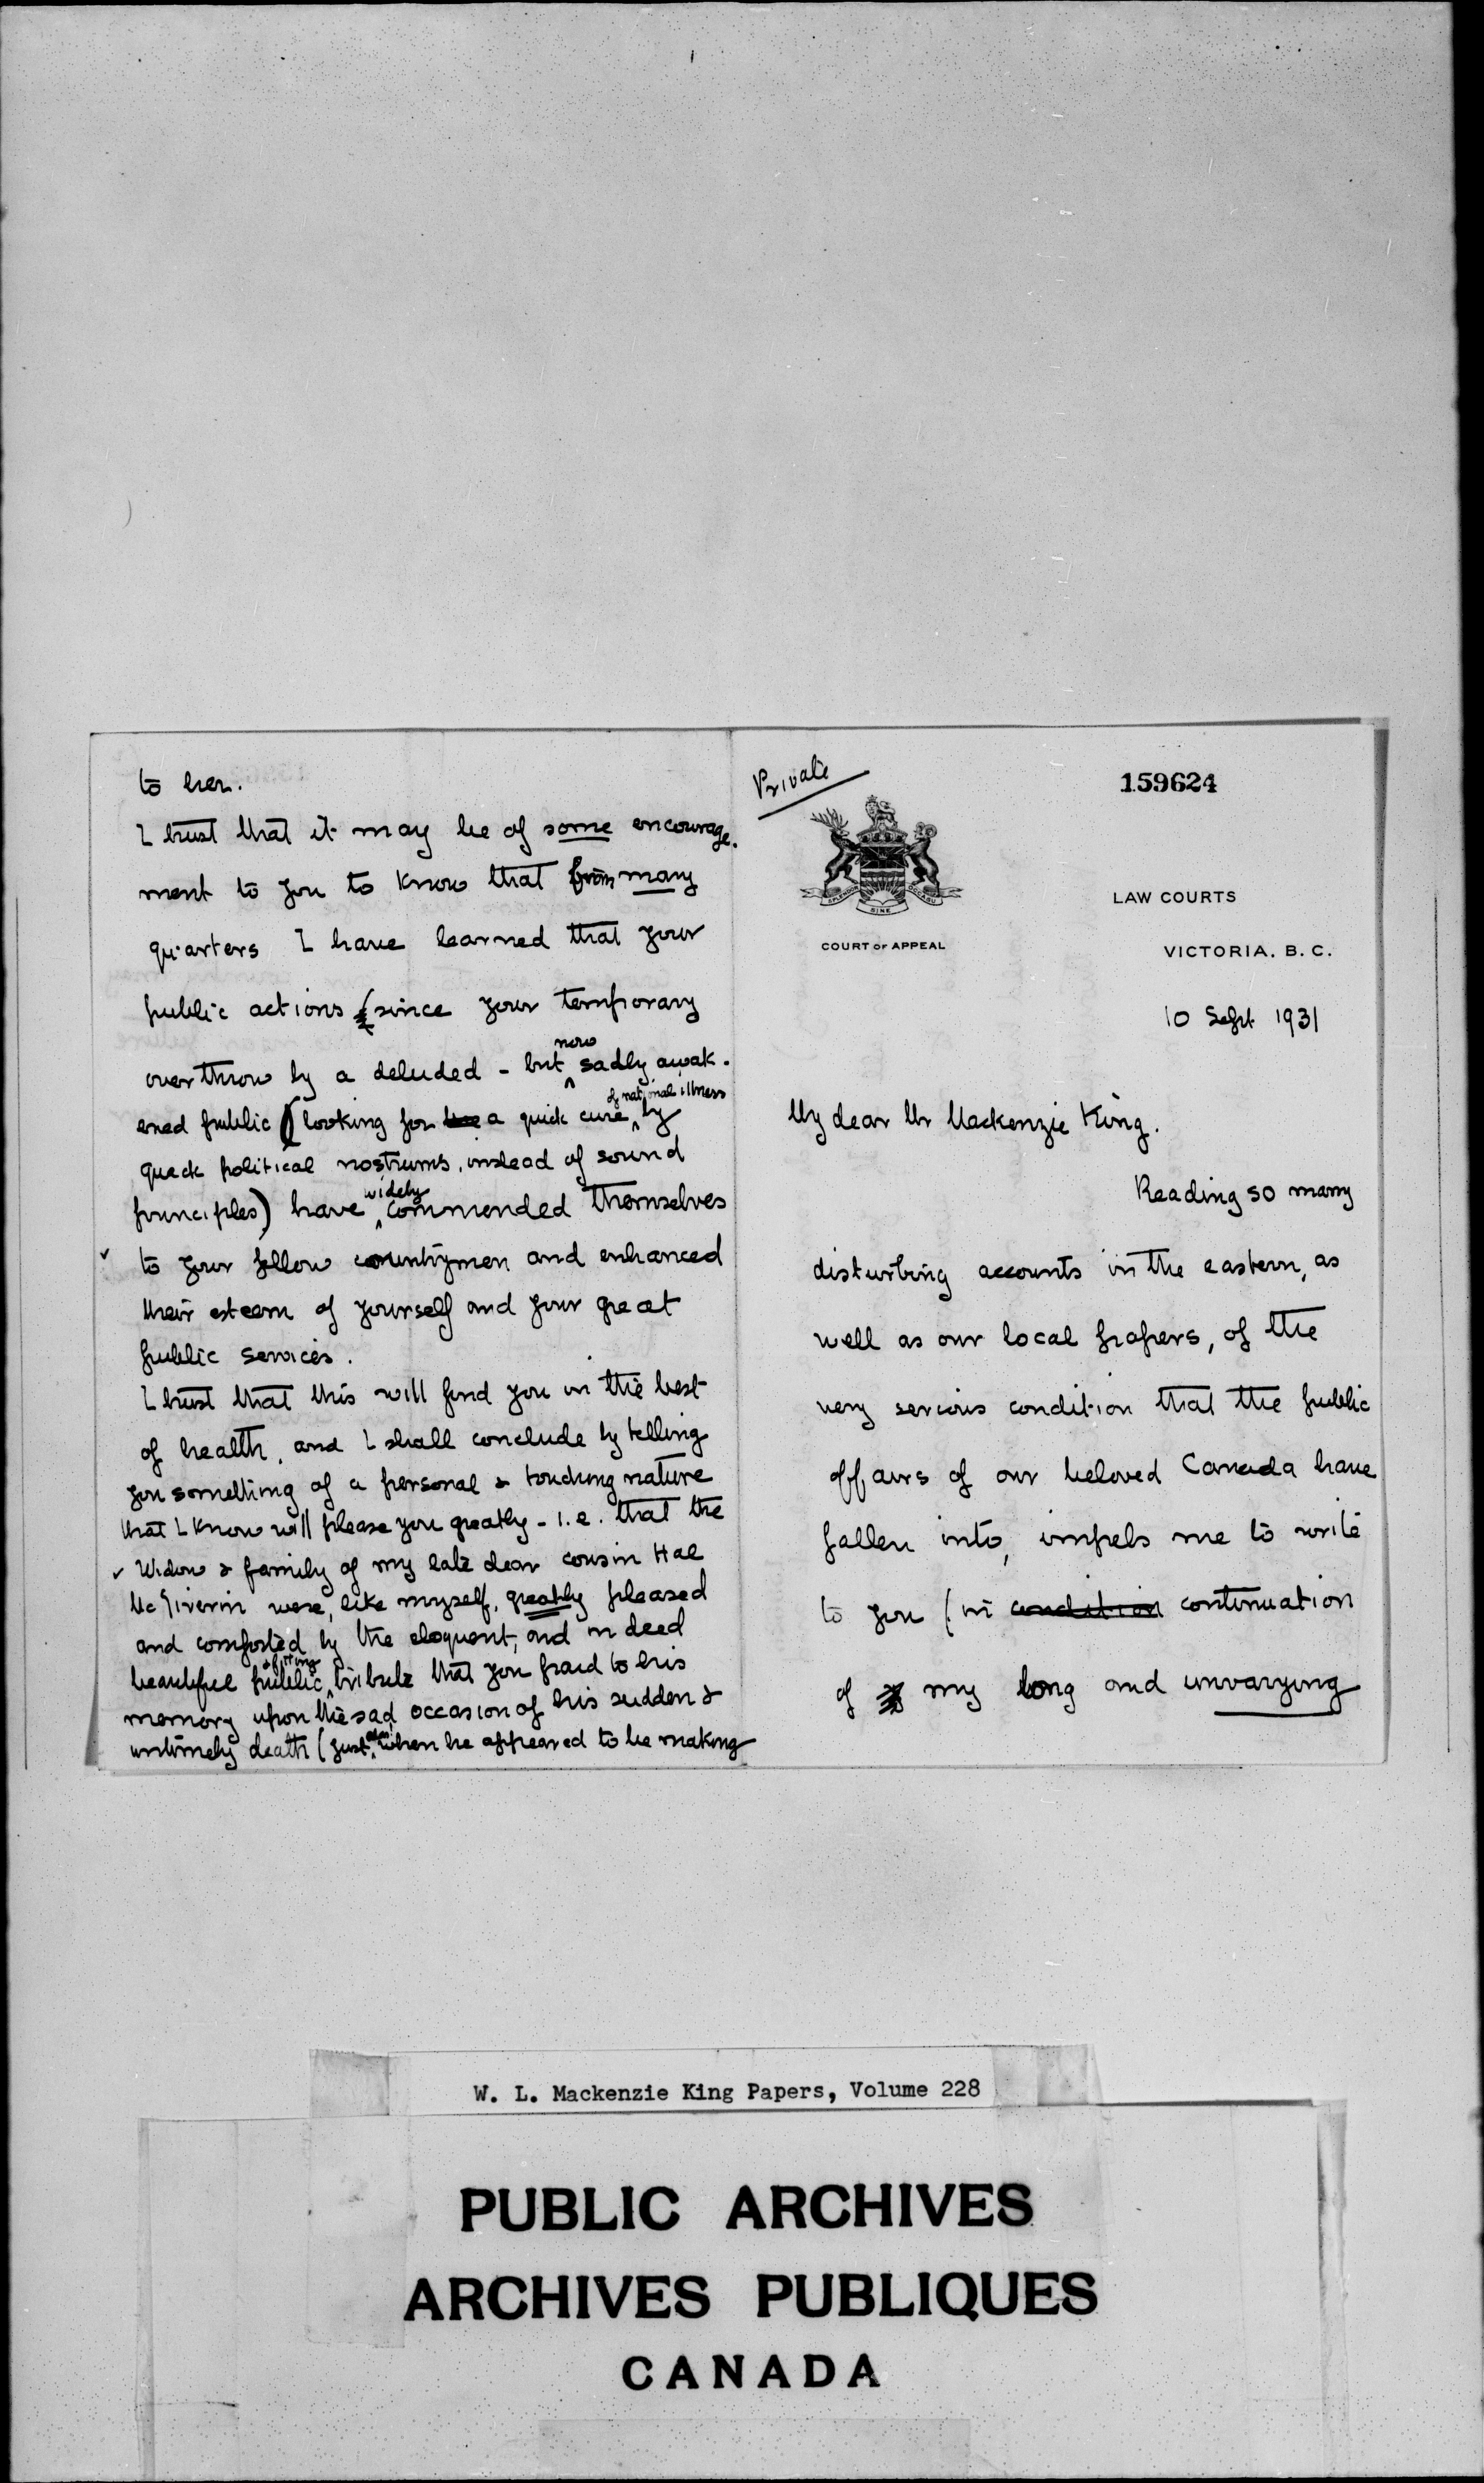 to her.
I trust that it may be of some encourage-
ment to you to know that from many
quarters I have learned that your
public actions (since your temporary
overthrow by a deluded - but now sadly awak-
ened public (looking for a quick cure of national illness by
quack political nostrums, instead of sound
principles) have widely commended themselves
to your fellow countrymen and enhanced
their esteem of yourself and your great
public services.
I trust that this will find you in the best
of health, and I shall conclude by telling
you something of a personal & touching nature
that I know will please you greatly - i.e. that the
Widow & family of my late dear cousin Hal
McGiverin were, like myself, greatly pleased
and comforted by the eloquent, and indeed
beautiful public & fitting tribute that you paid to his
memory upon the sad occasion of his sudden &
untimely death (just when he appeared to be making
Private
159624
SPLENDOR SINE OCCASU
COURT OF APPEAL
LAW COURTS
VICTORIA, B. C.
10 Sept 1931
My dear Mr Mackenzie King.
Reading so many
disturbing accounts in the eastern, as
well as our local papers, of the
very serious condition that the public
affairs of our beloved Canada have
fallen into, impels me to write
to you (in condition continuation
of my long and unvarying
W. L. Mackenzie King Papers, Volume 228
PUBLIC ARCHIVES
ARCHIVES PUBLIQUES
CANADA